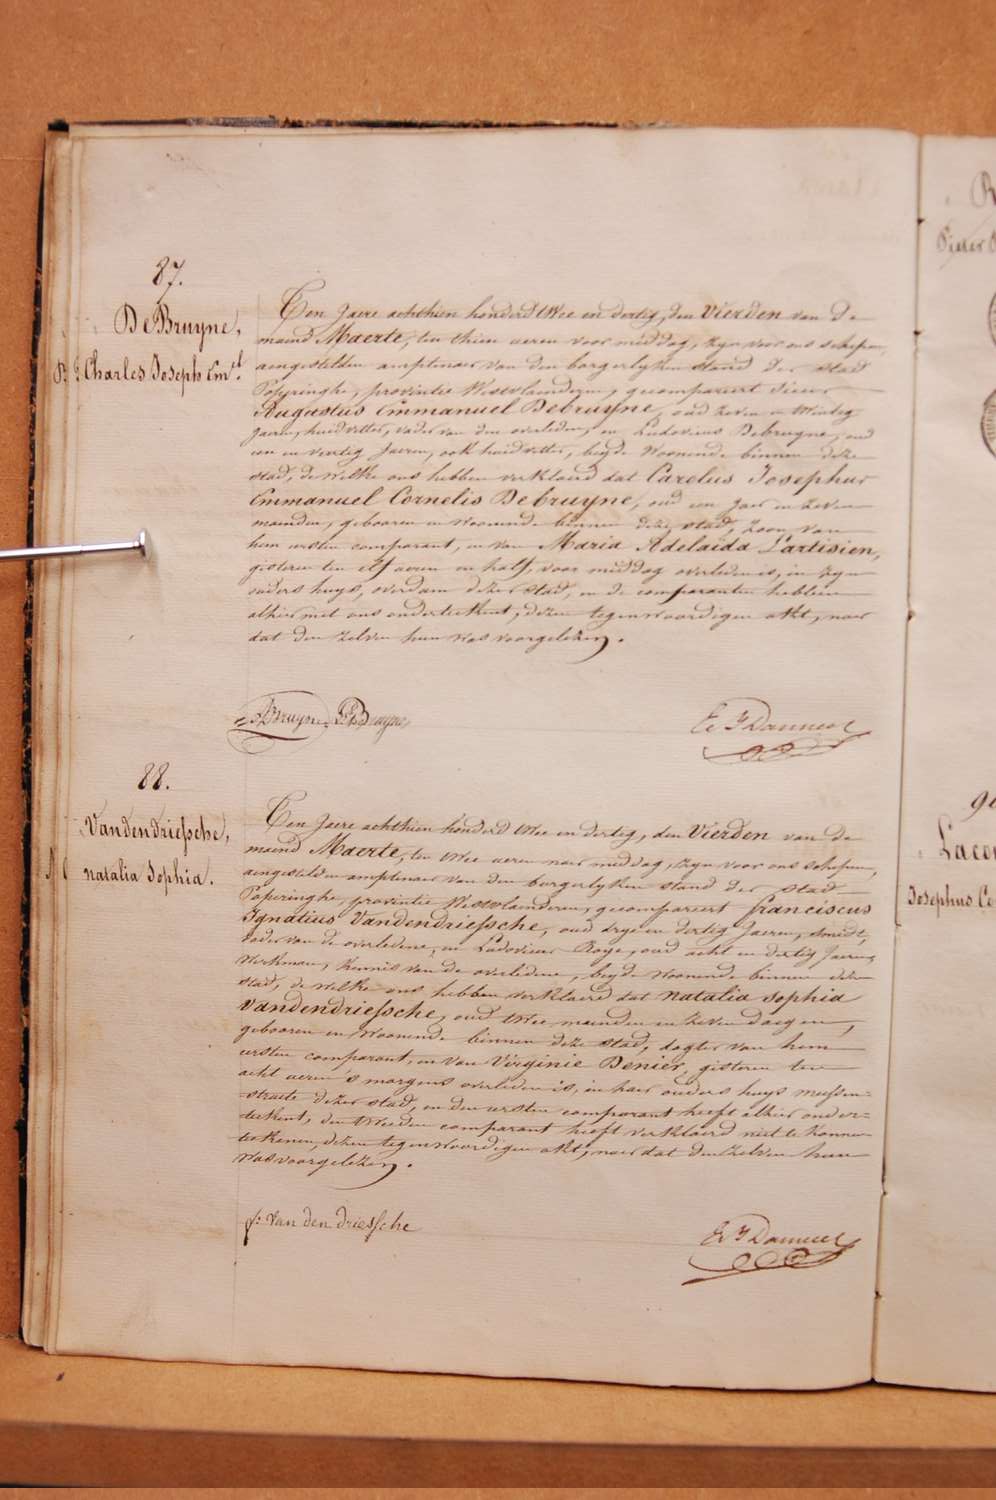 87.
DeBruyne,
Charles Joseph Em.el
Ten Jaere achthien honderd twee en dertig, den Vierden van de
maend Maerte, ten thien ueren voor middag, zyn voor ons schepen,
aengestelden amptenaer van den borgerlyken stand der stad
Poperinghe, provintie Westvlaenderen, gecompareert sieur
Augustus Emmanuel Debruyne, oud zeven en twintig
jaeren, huidvetter, vader van den overleden, en Ludovicus Debruyne, oud
een en veertig jaeren, ook huidvetter, beyde woonende binnen deze
stad, de welke ons hebben verklaerd dat Carolus Josephus
Emmanuel Cornelis Debruyne, oud een jaer en zeven
maenden, gebooren en woonende binnen deze stad, zoon van
hem eersten comparant, en van Maria Adelaïda Lartisien,
gisteren ten elf ueren en half, voor middag overleden is, in zyn
ouders huys, overdam dezer stad, en de comparanten hebben
alhier met ons ondertekent, dezen tegenwoordigen akt, naer
dat den zelven hun was voorgelezen.
DeBruyne
88.
Vandendriessche,
natalia Sophia.
Ten Jaere achthien honderd twee en dertig, den Vierden van de
maend Maerte, ten twee ueren naer middag, zyn voor ons schepen,
aengestelden amptenaer van den borgerlyken stand der stad
Poperinghe, provintie Westvlaenderen, gecompareert franciscus
Ignatius Vandendriessche, oud drye en dertig jaeren, smidt,
vader van de overledene, en Ludovicus Roye, oud acht en dertig jaeren,
werkman, kennis van de overledene, beyde woonende binnen deze
stad, de welke ons hebben verklaerd dat natalia sophia
vandendriessche, oud twee maenden en zeven daegen,
gebooren en woonende binnen deze stad, dogter van hem
eersten comparant, en van Virginie Denier, gisteren ten
acht ueren 's morgens overleden is, in haer ouders huys messen=
=straete dezer stad, en den eersten comparant heeft alhier onder=
=tekent, den tweeden comparant heeft verklaerd niet te konnen
teekenen, dezen tegenwoordigen akt, naer dat den zelven hun
was voorgelezen.
f: Van den driessche
Lacen
Josephus Co